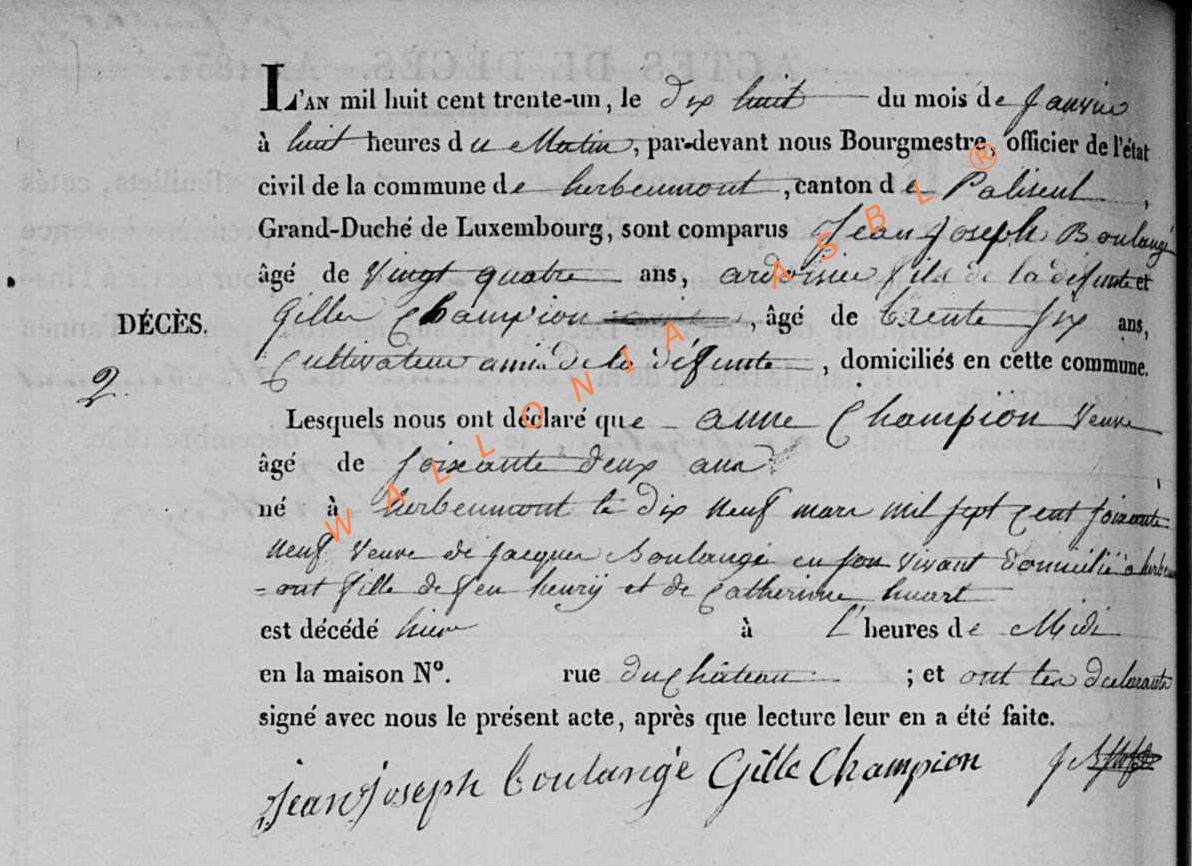 L'AN mil huit cent trente-un, le dix huit du mois de Janvier
à huit heures du Matin, par-devant nous Bourgmestre, officier de l'état
civil de la commune de herbeumont, canton de Paliseul,
Grand-Duché de Luxembourg, sont comparus Jean Joseph Boulangé
âgé de Vingt quatre ans, ardoisier fils de la défunte et
Gille Champion, âgé de trente six ans,
DÉCÈS.
Cultivateur ami de la défunte, domiciliés en cette commune.
2.
Lesquels nous ont déclaré que anne Champion Veuve
âgé de soixante deux ans
né à herbeumont le dix neuf mars mil sept cent soixante
neuf Veuve de jacques Boulangé en son vivant domicilié à herbeum
=ont fille de feu henrij et de Catherinne huart
est décédé hier à l'heures de Midi
en la maison N°. rue du château ; et ont les declarants
signé avec nous le présent acte, après que lecture leur en a été faite.
jean joseph boulangé Gille Champion
WALLONIA ASBL ®